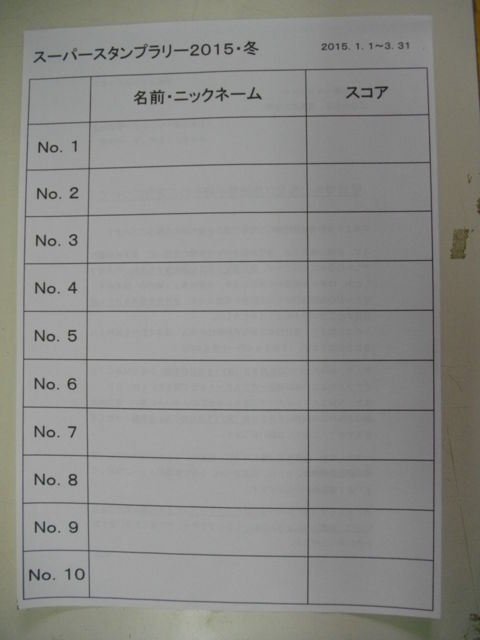 スーパースタンプラリー2015・冬
2015. 1. 1～3. 31
名前・ニックネーム スコア
No. 1
No. 2
No. 3
No. 4
No. 5
No. 6
No. 7
No. 8
No. 9
No. 10